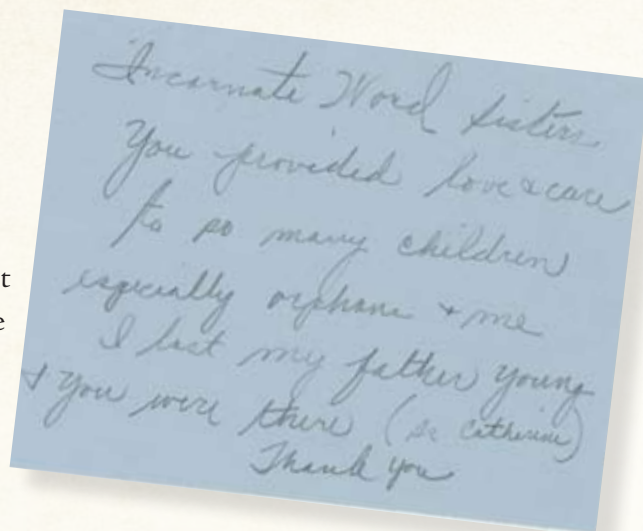 Incarnate Word Sisters
You provided love & care
to so many children
especially orphans & me
I lost my father young
& You were there (Sr Catherine)
Thank you